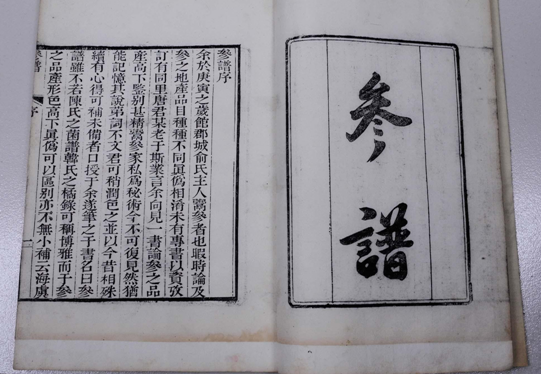 參譜
參譜序
余於庚寅之歲館郡城俞氏主人鬻參者也暇時論及
參之地產品目種種不同眞僞相淆未有專書以資攷
訂有同里唐君某老于斯業言余向見一書論參之品
產高下鑒別甚精鬻參家私爲秘術今不可復見然猶
能記憶其說第詞不文君可稍潤色之並以今昔相殊
續有心得可補未備者口授于余遂筆之于書名曰參
譜雖不若陳氏之菌譜韓氏之橘錄可稱博雅而于參
之品產形色高下眞僞可以區別亦不無小補云海虞
序
一